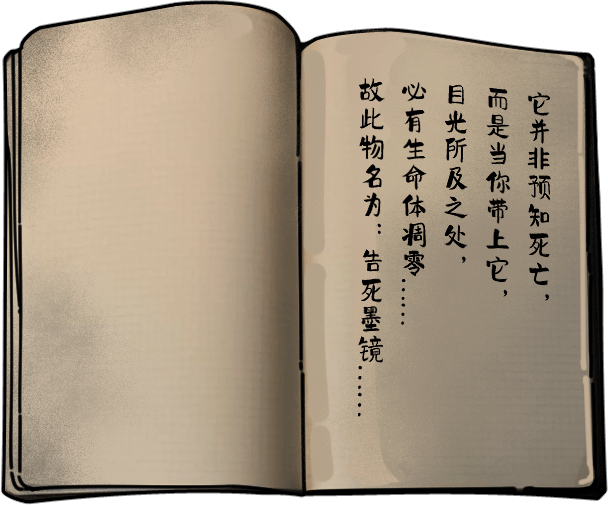 它并非预知死亡，
而是当你带上它，
目光所及之处，
必有生命体凋零……
故此物名为：告死墨镜……